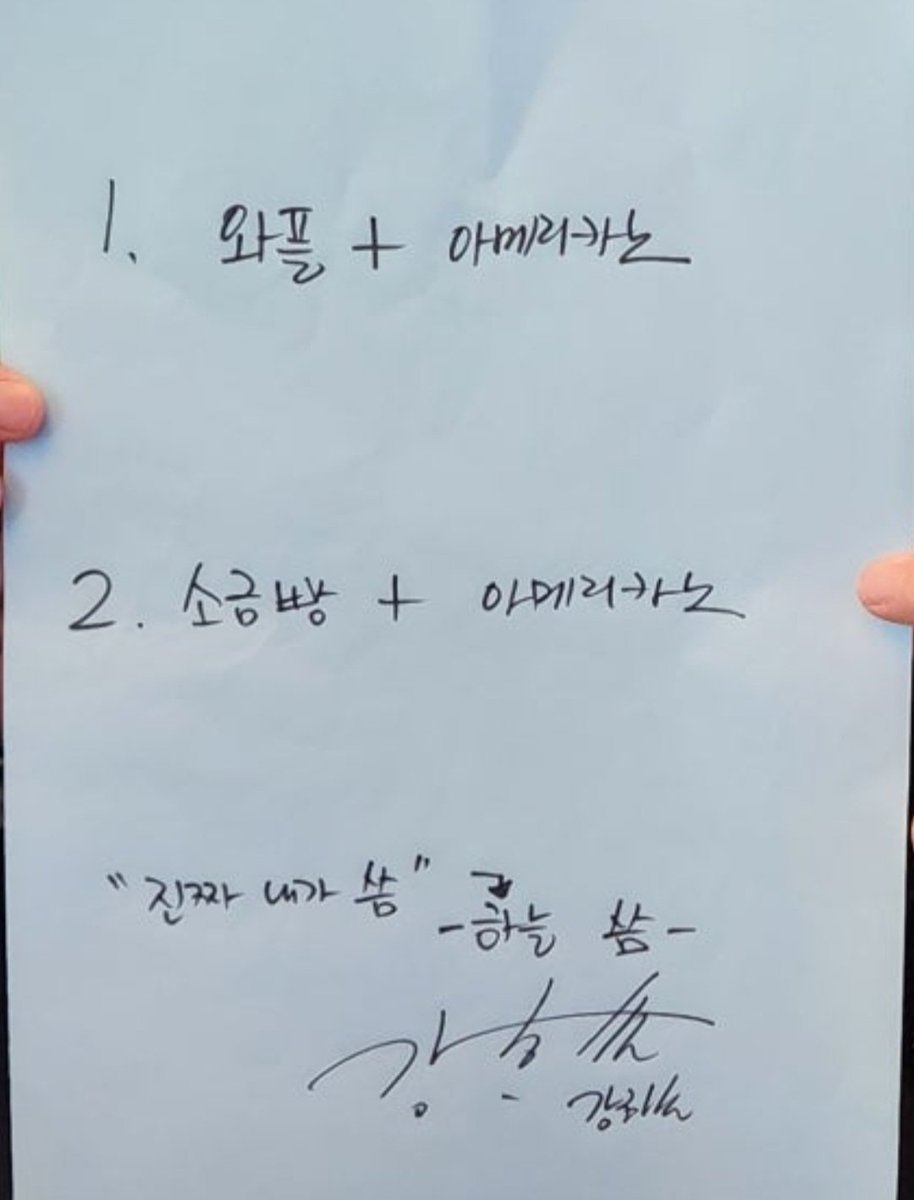 1. 와플 + 아메리카노
2. 소금빵 + 아메리카노
"진짜 내가 씀"
-하늘 씀-